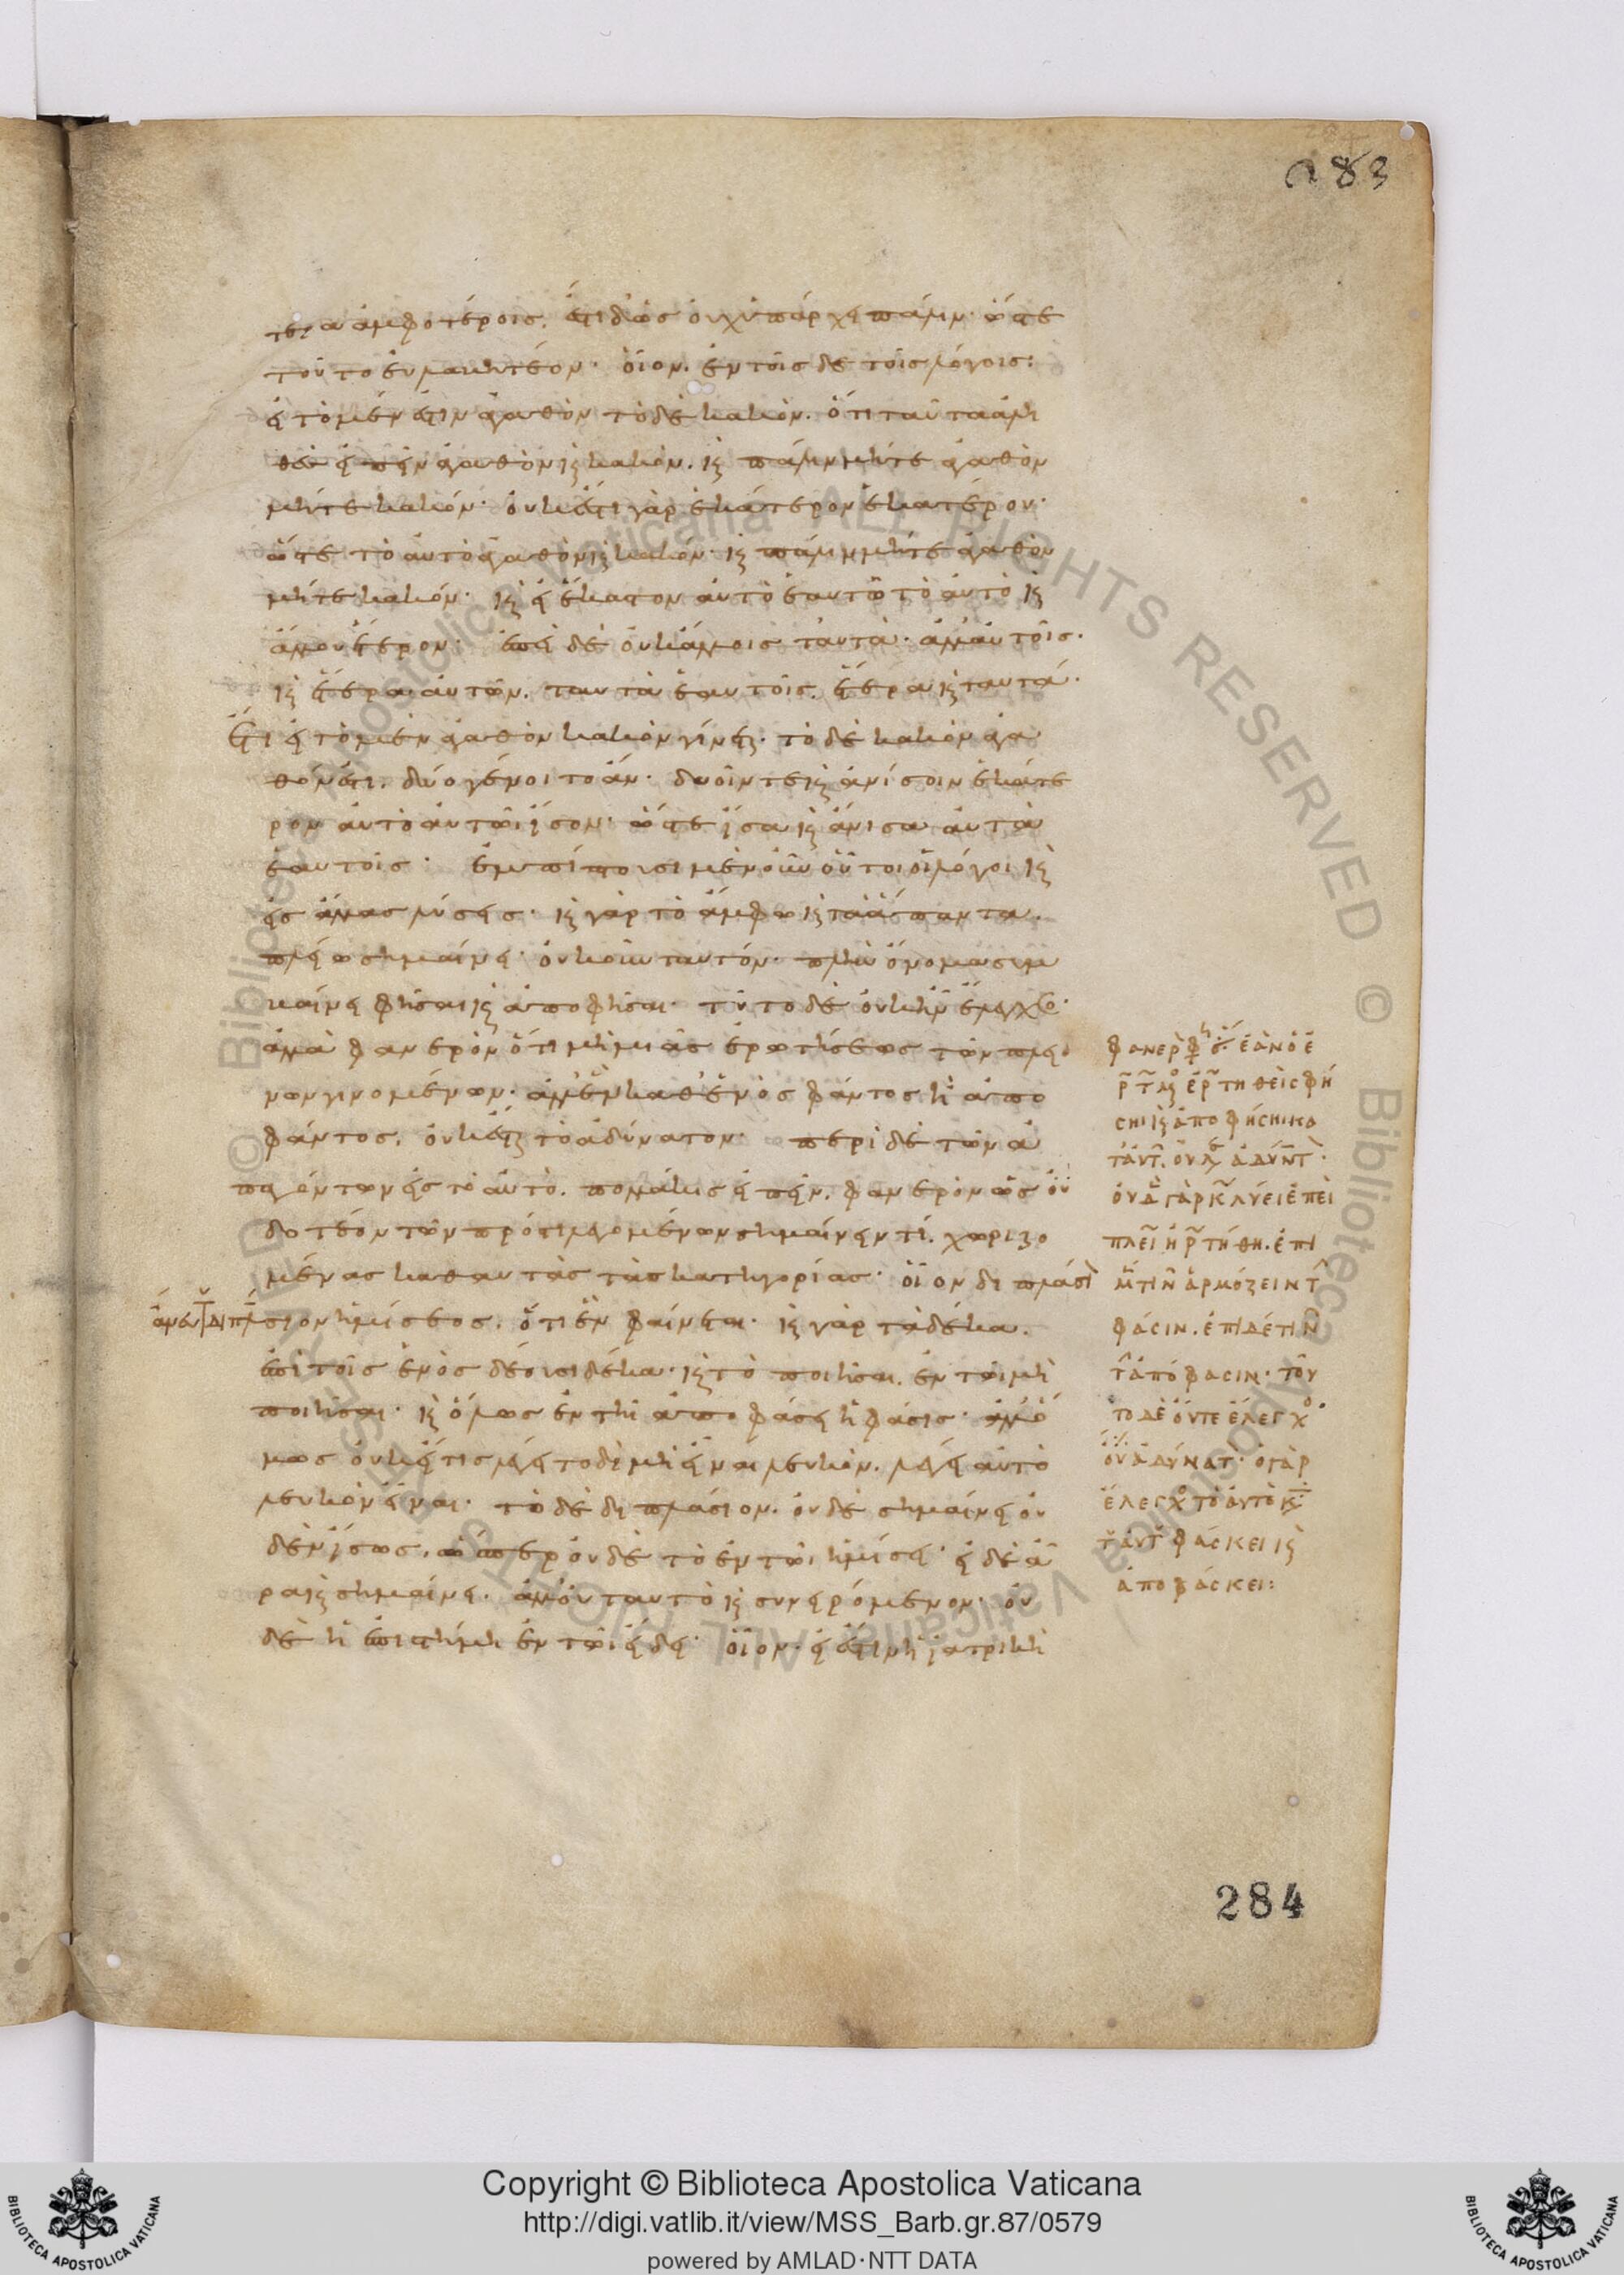 τερα ἀμφοτέροις. ἔστι δ' ὡς οὐχ ὑπάρχει πάλιν· ὥστε
τοῦτο εὐλαβητέον· οἷον. ἐν τοῖς δὲ τοῖς λόγοις:
εἰ τὸ μέν ἐστιν ἀγαθὸν τὸ δὲ κακὸν. ὅτι ταῦτα ἀλη
θὲς εἰπεῖν ἀγαθὸν καὶ κακὸν. καὶ πάλιν μήτε ἀγαθὸν
μήτε κακόν· οὐκ ἔστι γὰρ ἑκάτερον ἑκατέρον·
ὥστε τὸ αὐτὸ ἀγαθὸν καὶ κακόν· καὶ πάλιν μήτε ἀγαθὸν
μήτε κακόν· καὶ εἰ ἕκαστον αὐτὸ ἑαυτῶ τὸ αὐτὸ καὶ
ἄλλου ἕτερον· ἐπεὶ δὲ οὐκ ἄλλοις ταὐτὰ· ἀλλ' αὑτοῖς·
καὶ ἕτερα αὑτῶν. ταυτὰ ἑαυτοῖς. ἕτερα καὶ ταυτά·
ἔτι εἰ τὸ μὲν ἀγαθὸν κακὸν γίνεται· τὸ δὲ κακὸν ἀγα
θόν ἐστι. δύο γένοιτο ἄν· δυοῖν τε καὶ ἀνίσοιν ἑκάτε
ρον αὐτὸ αὑτῶι ἴσον· ὥστε ἴσα καὶ ἄνισα αὐτὰ
ἑαυτοῖς· ἐμπίπτουσι μὲν οὖν οὗτοι οἱ λόγοι καὶ
εἰς ἄλλας λύσεις· καὶ γὰρ τὸ ἄμφω καὶ τὰ ἅπαντα.
πλείω σημαίνει· οὔκουν ταυτόν· πλὴν ὄνομα συμ
βαίνει φῆσαι καὶ ἀποφῆσαι· τοῦτο δὲ οὐκ ἦν ἔλεγχος·
ἀλλὰ φανερὸν ὅτι μὴ μιᾶς ἐρωτήσεως τῶν πλειό
νων γινομένων· ἀλλ' ἓν καθ' ἑνὸς φάντος ἢ ἀπο
φάντος. οὐκ ἔσται τὸ ἀδύνατον· περὶ δὲ τῶν ἀ
παγόντων εἰς τὸ αὐτὸ. πολλάκις εἰπεῖν. φανερὸν ὡς οὐ
δοτέον τῶν πρός τι λεγομένων σημαίνειν τί. χωριζο
μένας καθ αὑτὰς τὰς κατηγορίας· οἷον διπλάσι
ον ἄνευ τοῦ διπλάσιον ἡμίσεος. ὅτι ἐν φαίνεται· καὶ γὰρ τὰ δέκα.
ἐν τοῖς ἑνὸς δέουσι δέκα· καὶ τὸ ποιῆσαι. ἐν τῶι μὴ
ποιῆσαι· καὶ ὅλως ἐν τῆι ἀποφάσει ἡ φάσις· ἀλλ' ὅ
μως οὐκ εἴ τις λέγει τοδὶ μὴ εἶναι λευκόν. λέγει αὐτὸ
λευκὸν εἶναι· τὸ δὲ διπλάσιον. οὐδὲ σημαίνει οὐ
δὲν ἴσως. ὥσπερ οὐδὲ τὸ ἐν τῶι ἡμίσει· εἰ δὲ ἄ
ρα καὶ σημαίνει. ἀλλ' οὐ ταυτὸ καὶ συνειρόμενον· οὐ
δὲ ἡ ἐπιστήμη ἐν τῶι εἴδει· οἷον· εἰ ἔστιν ἡ ἰατρικὴ
ἐὰν ὁ ἐ
ρωτώμενος ἐρωτηθεὶς φή
σηι καὶ ἀποφήσηι κα
τ' αὐτοῦ. ἀδύνατον·
οὐδὲ γὰρ κωλύει ἐπεὶ
πλείω ἠρωτήθη. ἐπί
τιν ἁρμόζειν τὴν
φάσιν. ἐπὶ δέ τιν
τὴν ἀπόφασιν· τοῦ
το δὲ οὔτε ἔλεγχος
οὔτε ἀδύνατον· ὁ γὰρ
ἔλεγχος τὸ αὐτὸ κατὰ
τοῦ αὐτοῦ φάσκει καὶ
ἀποφάσκει:
283
284
Copyright © Biblioteca Apostolica Vaticana
http://digi.vatlib.it/view/MSS_Barb.gr.87/0579
powered by AMLAD·NTT DATA